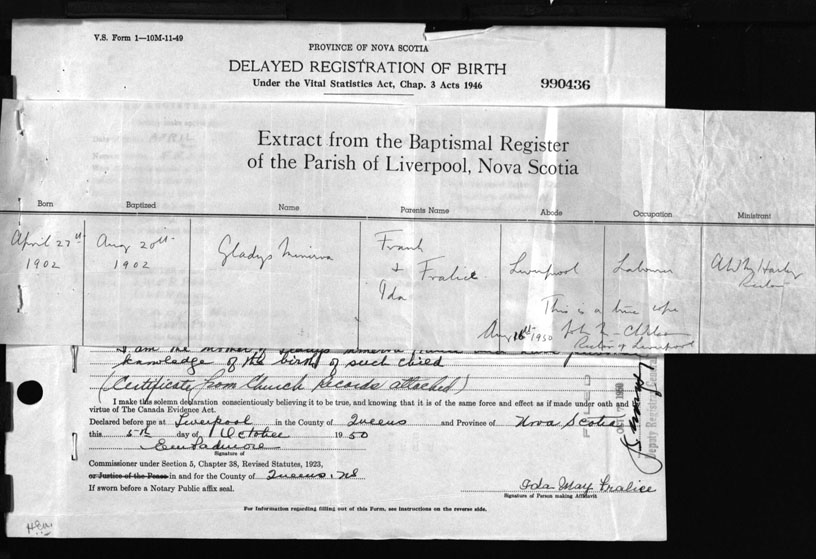 V.S. Form 1—10M-11-49
PROVINCE OF NOVA SCOTIA
DELAYED REGISTRATION OF BIRTH
Under the Vital Statistics Act, Chap. 3 Acts 1946
990436
Extract from the Baptismal Register
of the Parish of Liverpool, Nova Scotia
Born Baptized Name Parents Name Abode Occupation Ministrant
April 27th 1902
Aug 20th 1902
Gladys Minerva
Frank
&
Ida
Fralic
Liverpool
Labourer
Rector
This is a true copy
Aug 1950 John
Rector of Liverpool
I am the mother of Gladys Minerva and have
knowledge of the birth of such child
(Certificate from Church Records attached)
I make this solemn declaration conscientiously believing it to be true, and knowing that it is of the same force and effect as if made under oath and by
virtue of The Canada Evidence Act.
Declared before me at Liverpool in the County of Queens and Province of Nova Scotia
this 5th day of October 1950
Signature of
Commissioner under Section 5, Chapter 38, Revised Statutes, 1923,
or Justice of the Peace in and for the County of Queens, NS
If sworn before a Notary Public affix seal.
Ida May Fralice
Signature of Person making Affidavit
For Information regarding filling out of this Form, see instructions on the reverse side.
FILED
OCT 7 1950
Deputy Registrar